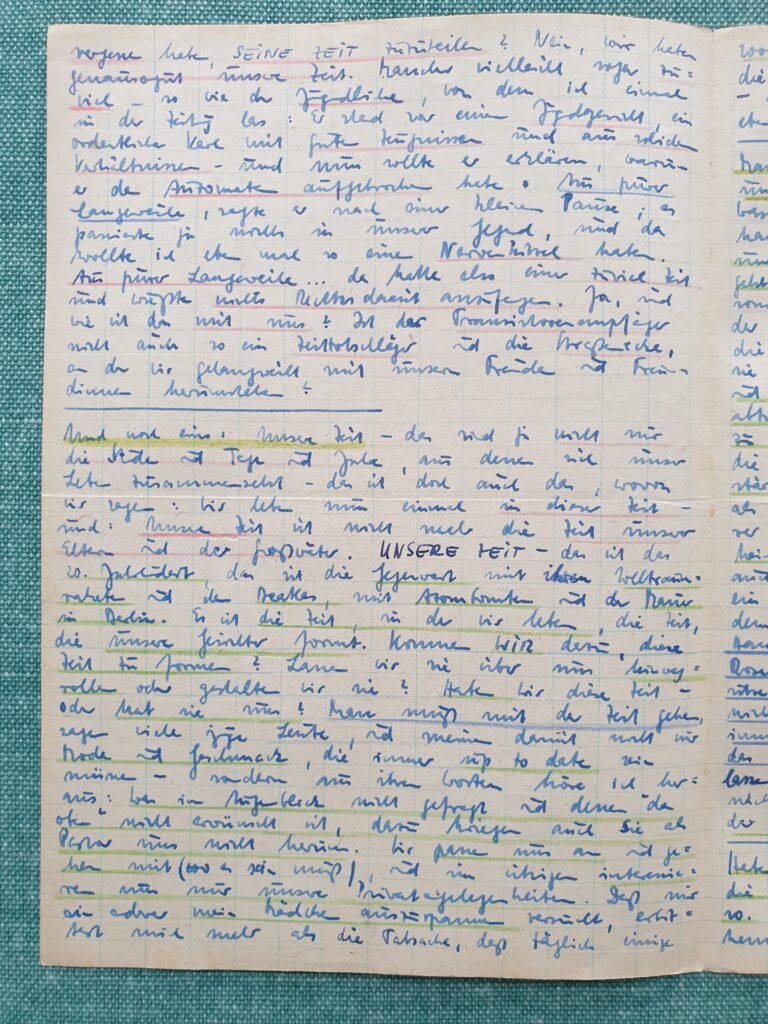 vergesse habe, SEINE ZEIT zuzuteilen? Nein, wir haben
genausogut unsere Zeit. Mancher vielleicht sogar zu-
viel – so wie der Jugendliche, von dem ich einmal
in der Zeitung las: Er stand vor einem Jugendgericht, ein
ordentlicher Kerl mit guten Zeugnissen und aus soliden
Verhältnissen – und nun sollte er erklären, warum
er den Automaten aufgebrochen habe. Aus purer
Langeweile, sagte er nach einer kleinen Pause; es
passierte ja nichts in unserer Gegend, und da
wollte ich eben mal so einen Nervenkitzel haben.
Aus purer Langeweile... da hatte also einer zuviel Zeit
und wußte nichts Rechtes damit anzufangen. Ja, und
wie ist das mit uns? Ist der Transistorenempfänger
nicht auch so ein Zeittotschläger und die Straßenecke,
an der wir gelangweilt mit unseren Freunden und Freun-
dinnen herumstehen?
Und noch eins: Unsere Zeit – das sind ja nicht nur
die Stunden und Tage und Jahre, aus denen sich unser
Leben zusammensetzt – das ist doch auch das, wovon
wir sagen: Wir leben nun einmal in dieser Zeit –
und: Unsere Zeit ist nicht mehr die Zeit unserer
Eltern und der Großväter. UNSERE ZEIT – das ist das
20. Jahrhundert, das ist die Gegenwart mit ihren Weltraum-
raketen und den Beatles, mit Atombomben und der Mauer
in Berlin. Es ist die Zeit, in der wir leben, die Zeit,
die unsere Gesichter formt. Kommen WIR dazu, diese
Zeit zu formen? Lassen wir sie über uns hinweg-
rollen oder gestalten wir sie? Haben wir diese Zeit –
oder hat sie uns? Man muß mit der Zeit gehen,
sagen viele junge Leute, und meinen damit nicht nur
Mode und Geschmack, die immer up to date sein
müssen – sondern aus ihren Worten höre ich her-
aus: Wer im Augenblick nicht gefragt und denen "da
oben" nicht erwünscht ist, dazu kriegen auch Sie als
Pastor uns nicht herum. Wir passen uns an und ge-
hen mit (wo es sein muß), und im übrigen interessie-
ren uns nur unsere Privatangelegenheiten. Daß mir
ein anderer mein Mädchen auszuspannen versucht, erbit-
tert mich mehr als die Tatsache, daß täglich einige